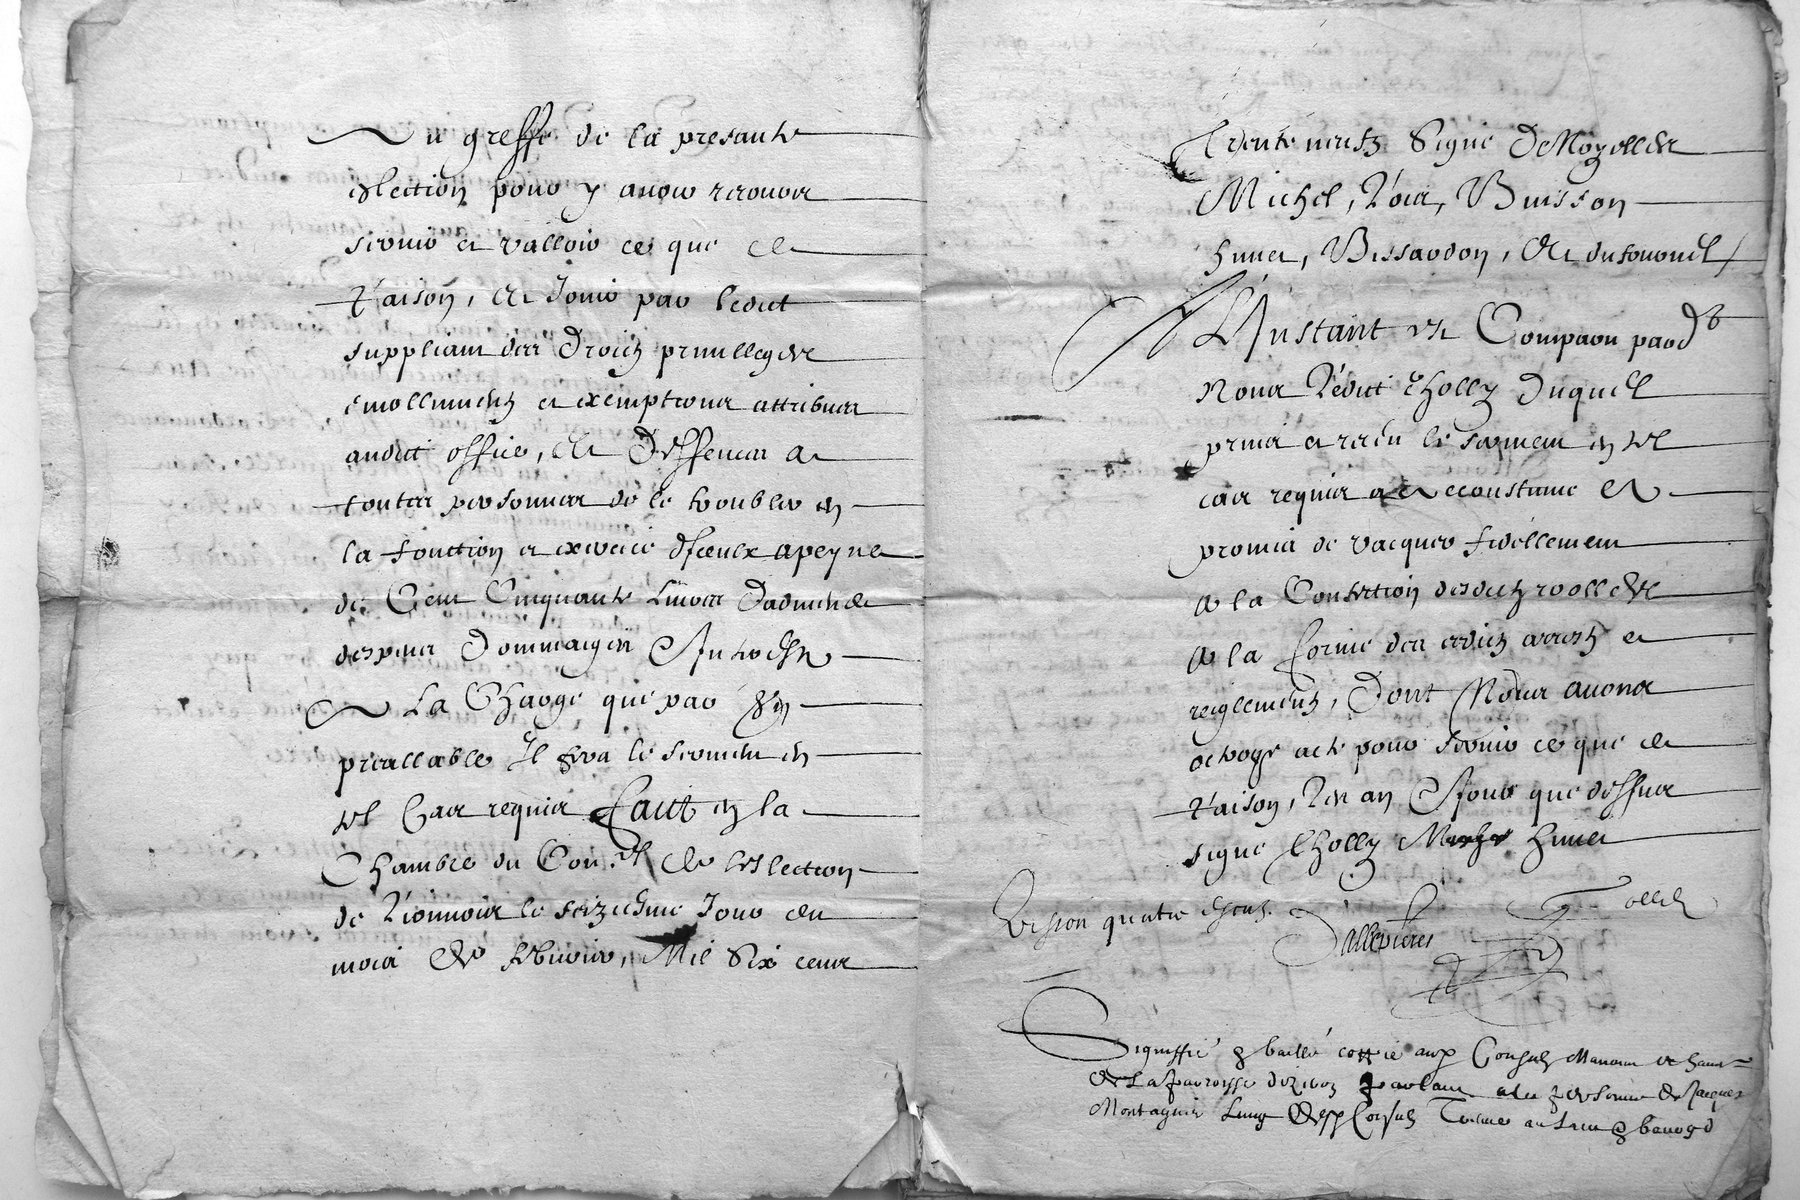 Au greffe de la presante
eslection pour y avoir recours
servir et valloir ce que de
raison, Et Jouir par ledict
suppliant des droictz previlleges
emollumentz et exemptions attribues
audict office, Et Deffences a
toutes personnes de le troubler en
la fonction et exercice d'Iceulx a peyne
de Cent Cinquante Livres Damende
despens Dommaiges Interestz
A La Charge que par un
preallable Il fera le serment en
tel Cas requis Faict en la
Chambre du Con.el de Leslection
de le seiziesme Jour du
mois de febvrier, Mil Six cens
trente neufz Signe DeNozelles
Michel, Buisson
hunes, Bissardon, Et
A L'Instant est Compareu par d
Nous ledict Cholly Duquel
prins et receu le serment en tel
cas requis et accoustume Et
promis de vacquer fidellement
A la Confection desdictz roolles
A la forme des edictz arrestz et
reiglementz, Dont Nous avons
octroye acte pour servir ce que de
raison, Les an et Jour que dessus
signe Cholly hunes
quatre escus.
Signiffie & baille coppie aux Consulz Manans et
de La parroisse parlant a la personne de Jacques
Montagnier Lung desd Consulz